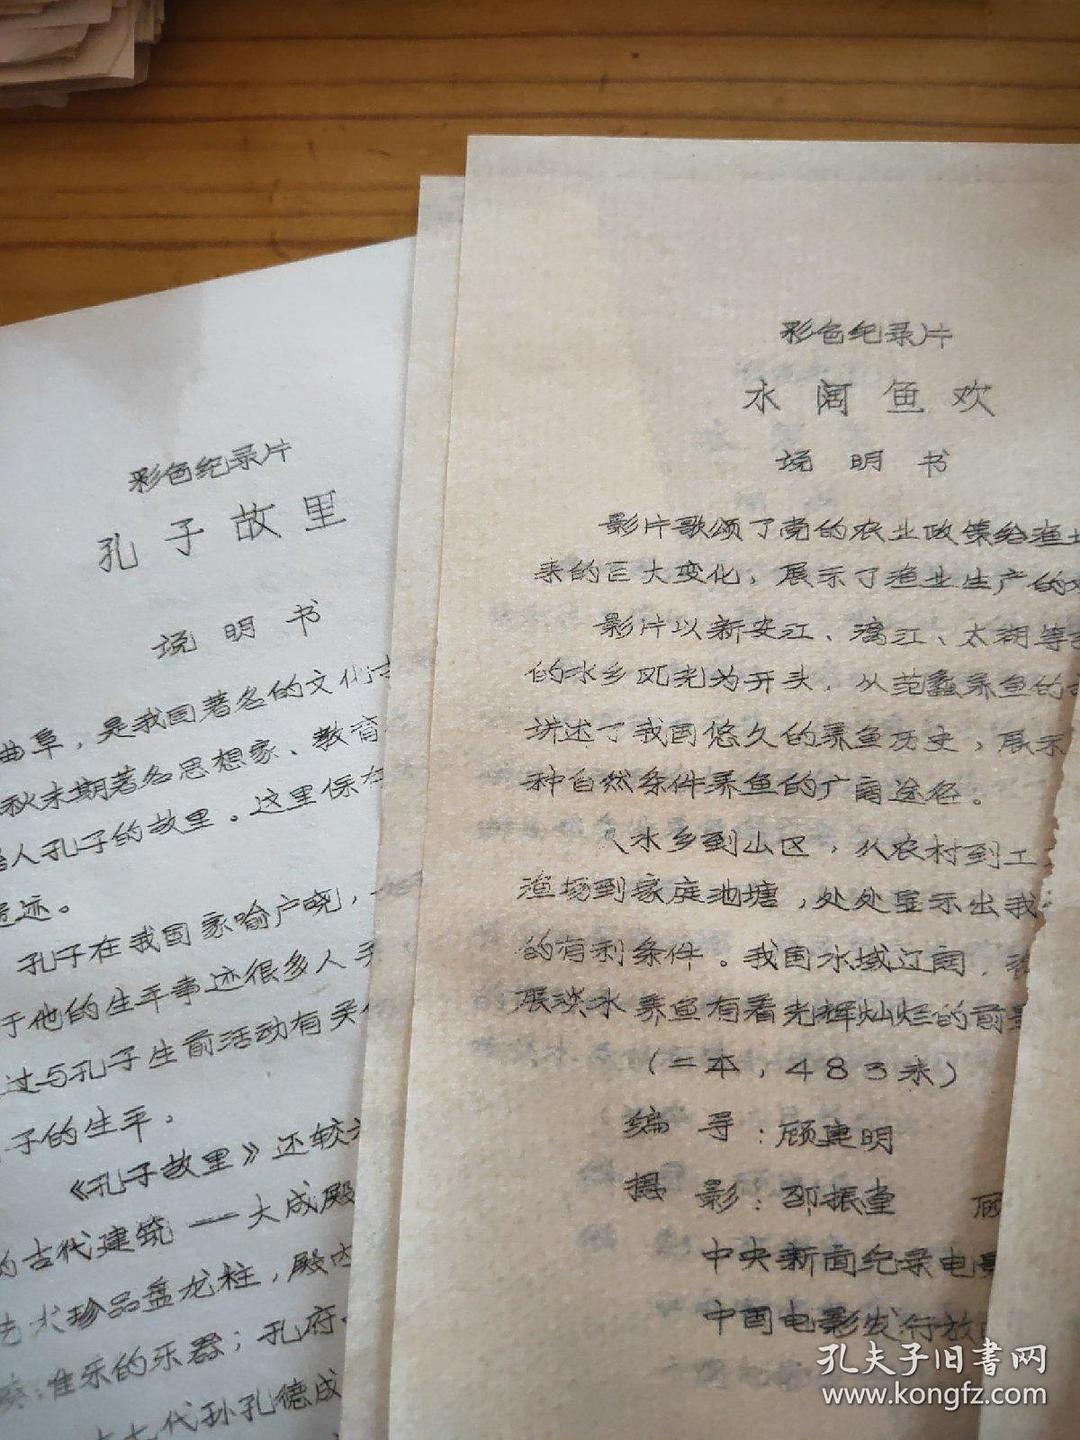 彩色纪录片
孔子故里
说明书
曲阜，是我国著名的文化
秋末期著名思想家、教育
人孔子的故里。这里保存
遗迹。
孔子在我国家喻户晓，
于他的生平事迹很多人
过与孔子生前活动有关
子的生平。
《孔子故里》还较
的古代建筑——大成殿
艺术珍品盘龙柱，殿内
奏雅乐的乐器；孔府
代孙孔德成
彩色纪录片
水阔鱼欢
说明书
影片歌颂了党的农业政策给渔
来的巨大变化，展示了渔业生产的
影片以新安江、漓江、太湖等
的水乡风光为开头，从范蠡养鱼的
讲述了我国悠久的养鱼历史，展示
种自然条件养鱼的广阔途径。
从水乡到山区，从农村到工
渔场到家庭池塘，处处显示出我
的有利条件。我国水域辽阔，
展淡水养鱼有着光辉灿烂的前景
（二本，483米）
编 导：顾建明
摄 影：邵振堂 顾
中央新闻纪录电影
中国电影发行放
孔夫子旧书网
www.kongfz.com